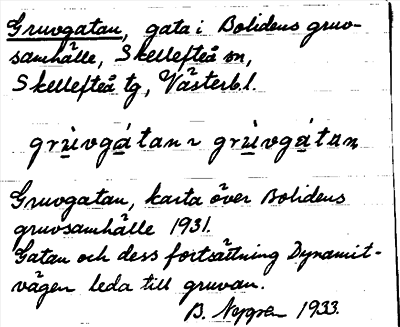 Gruvgatan, gata i Bolidens gruv-
samhälle, Skellefteå sn,
Skellefteå tg, Västerb.l.
grùvgátan ~ grùvgàtan
Gruvgatan, karta över Bolidens
gruvsamhälle 1931.
Gatan och dess fortsättning Dynamit-
vägen leda till gruvan.
B. Nygren 1933.